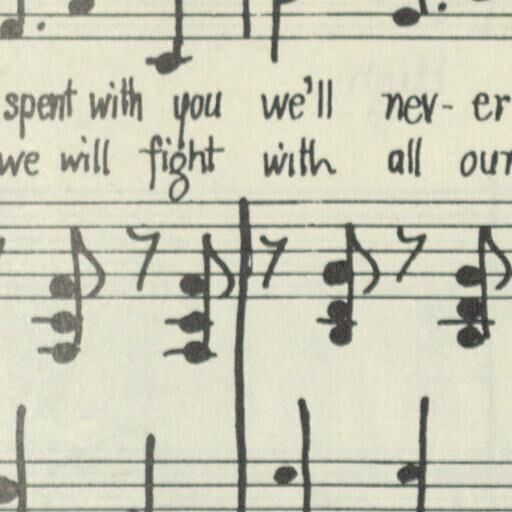 spent with you we'll nev- er
we will fight with all our